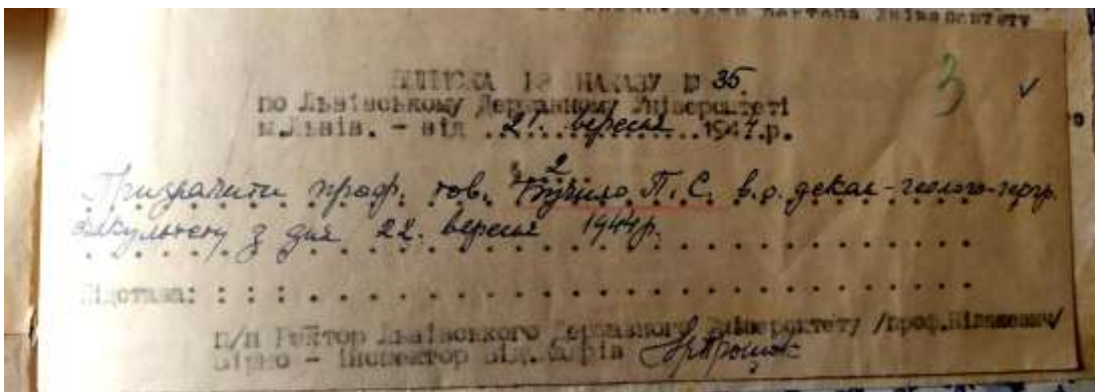 ВИПИСКА ІЗ НАКАЗУ № 35.
по Львівському Державному Університеті
м.Львів. – від 21. вересня 1944.р.
3 ✓
Призначити проф. тов. в. о. декан геолого-геогр.
факультету з дня 22. вересня 1944р.
Підстава: : : :
п/п Ректор Львівського Державного Університету /проф.
Вірно – інспектор від. кадрів